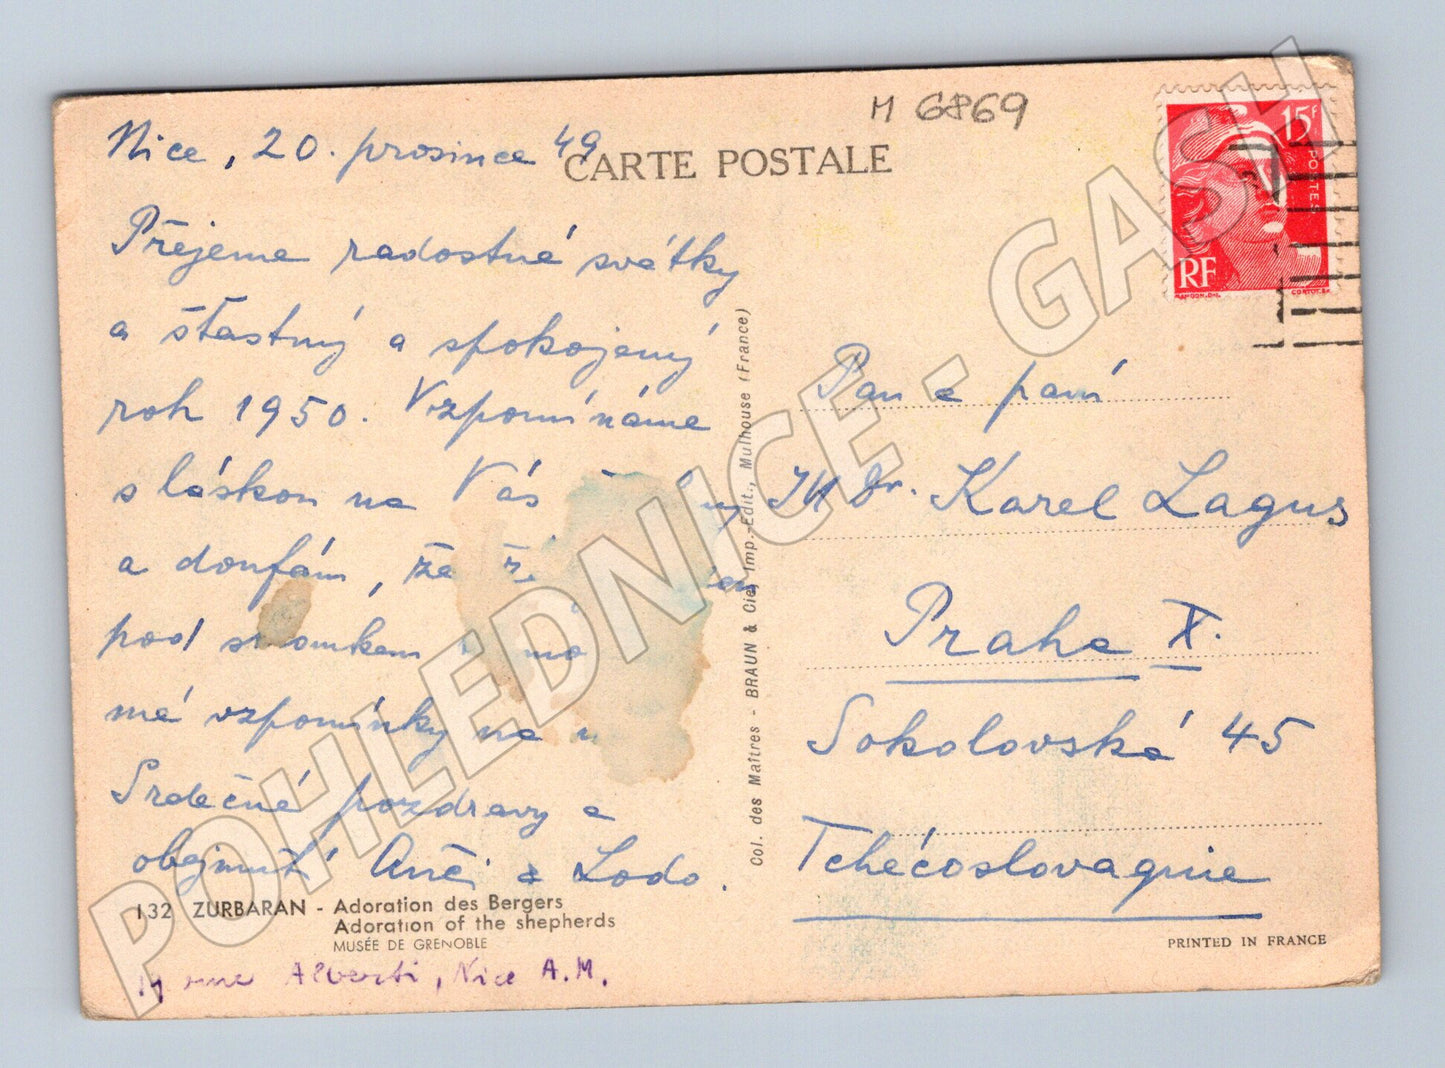 M 6869
Nice, 20. prosince 49
CARTE POSTALE
15F
POSTES
RF
Přejeme radostné svátky
a šťastný a spokojený
rok 1950. Vzpomínáme
s láskou na Vás
a doufám, že
pod stromkem
mé vzpomínky na
Srdečné pozdravy a
obejmutí Anči a Lodo.
132 ZURBARAN - Adoration des Bergers
Adoration of the shepherds
MUSÉE DE GRENOBLE
rue Alberti, Nice A.M.
Col. des Maîtres - BRAUN & Cie, Imp.-Edit., Mulhouse (France)
Pan a paní
JUDr. Karel Lagus
Praha X.
Sokolovská 45
Tchécoslovaquie
PRINTED IN FRANCE
POHLEDNICE - GASH